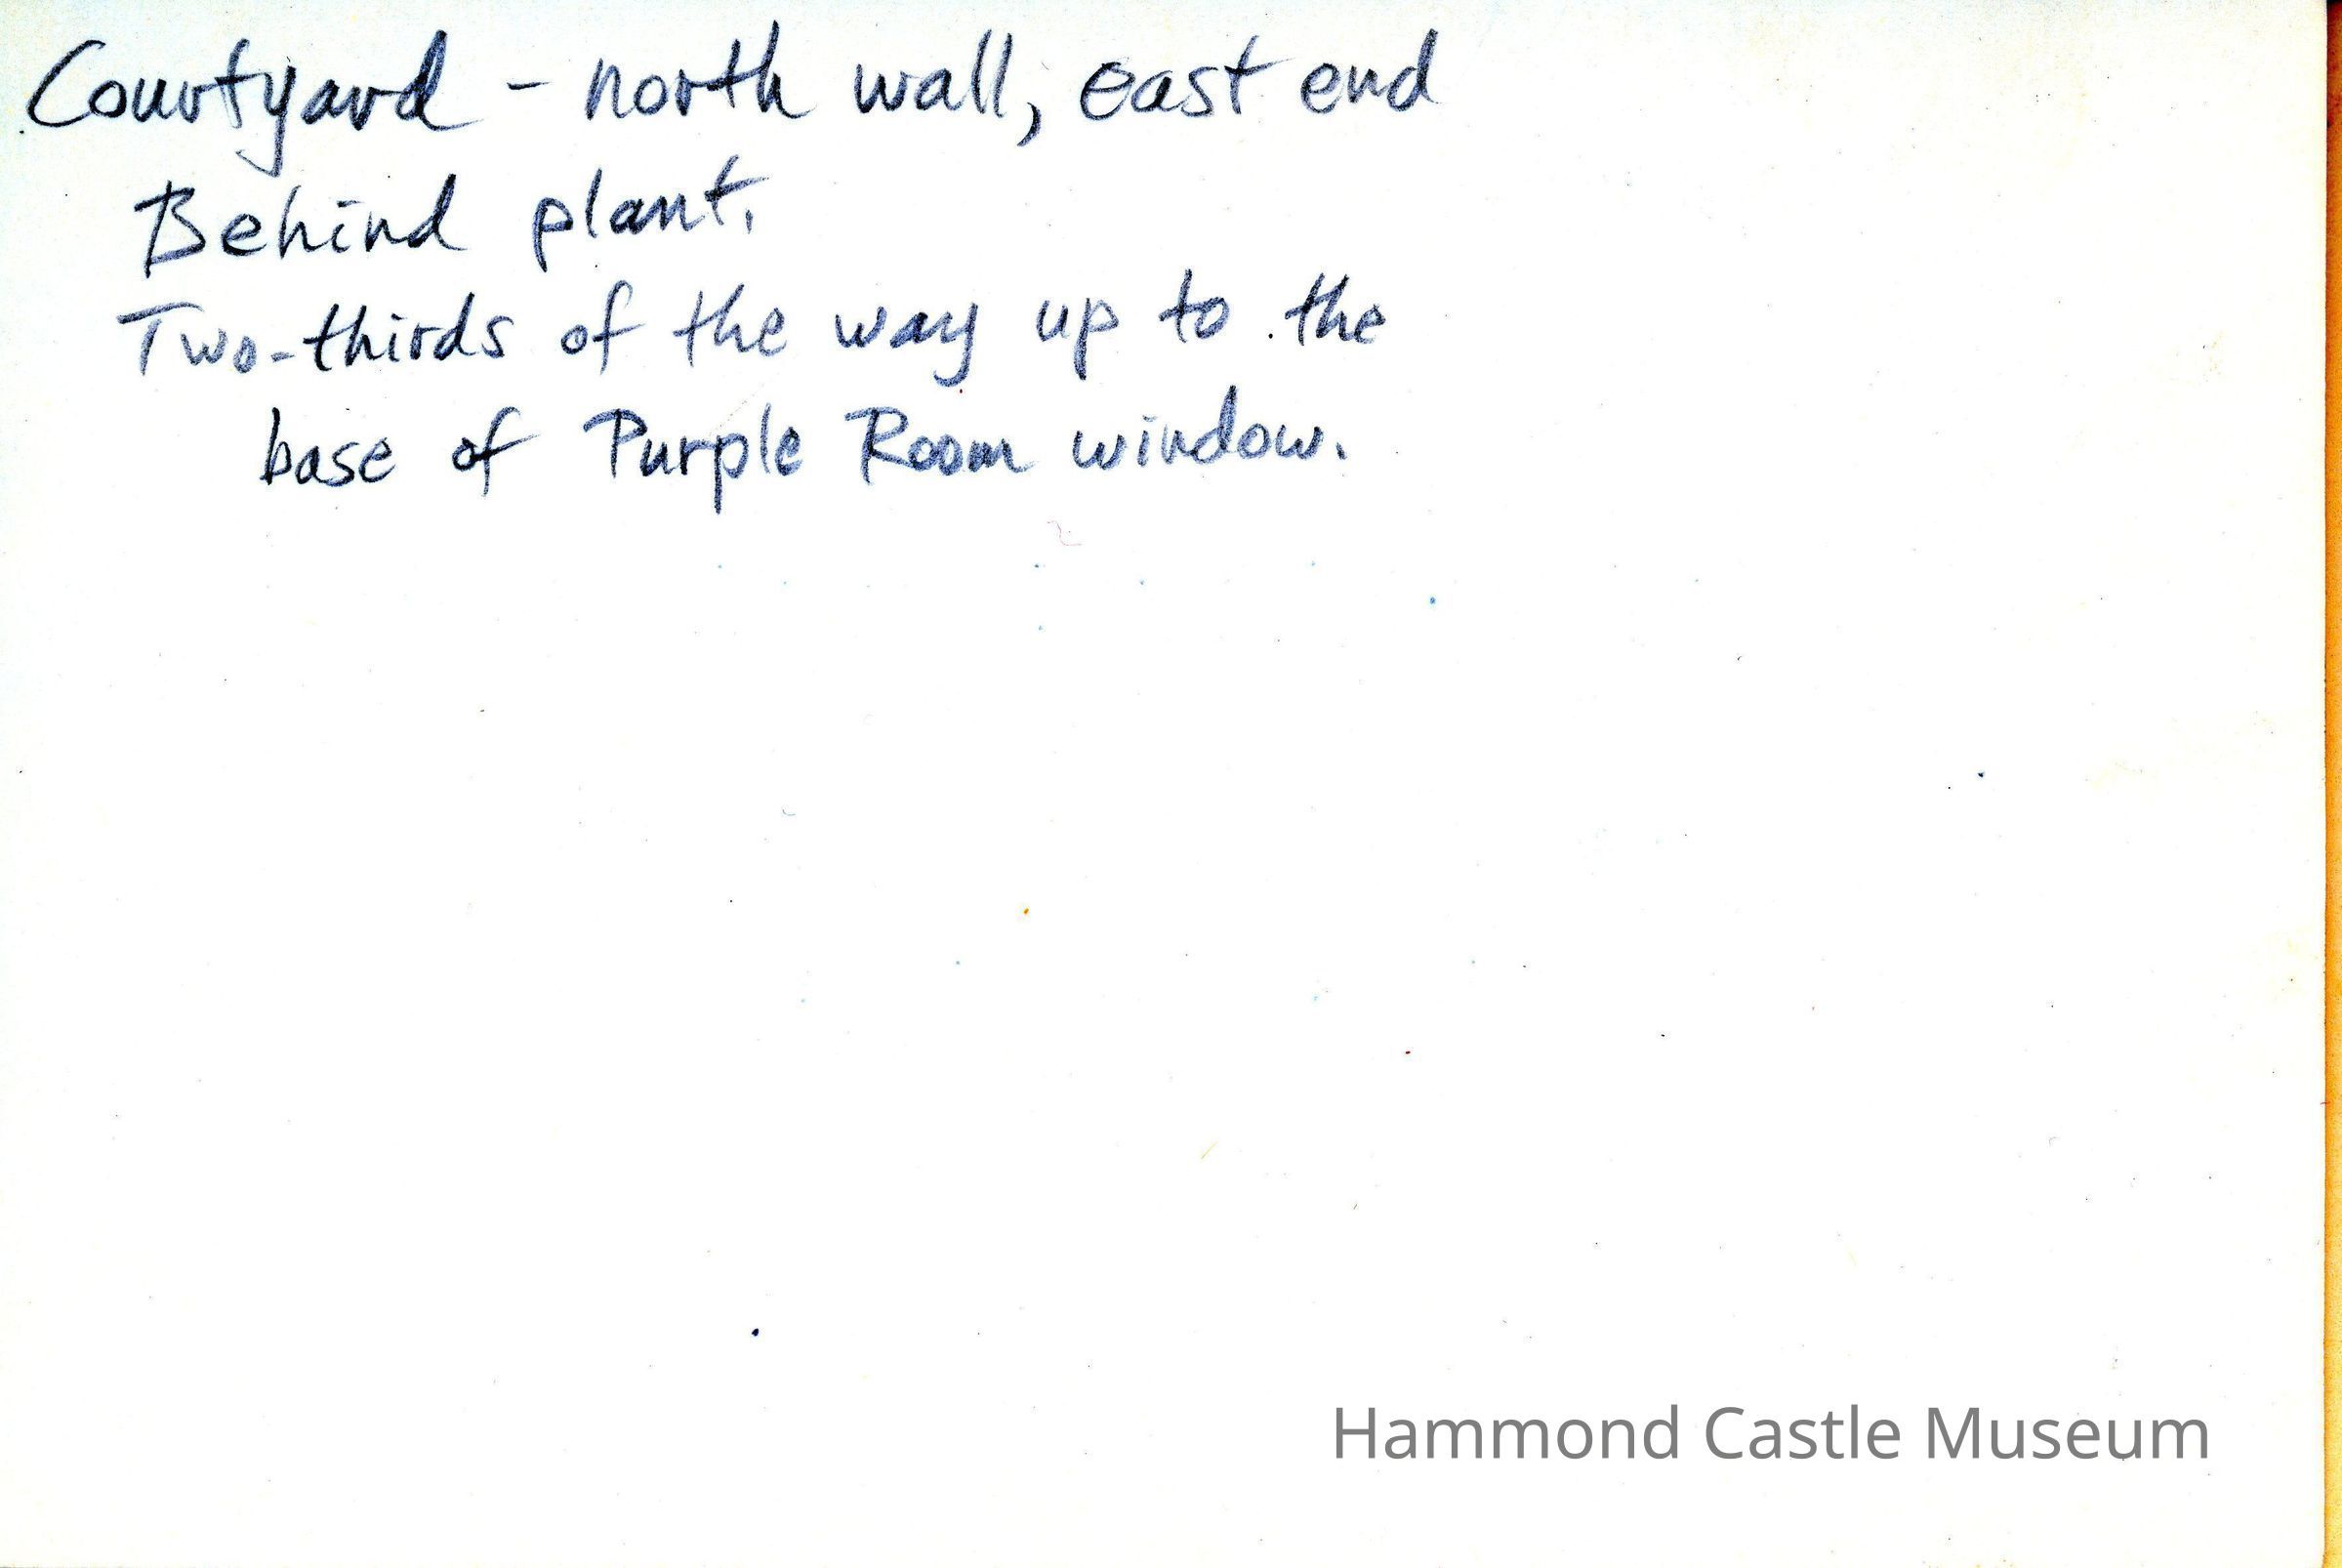 Courtyard - north wall, east end
Behind plant.
Two-thirds of the way up to the
base of Purple Room window.
Hammond Castle Museum